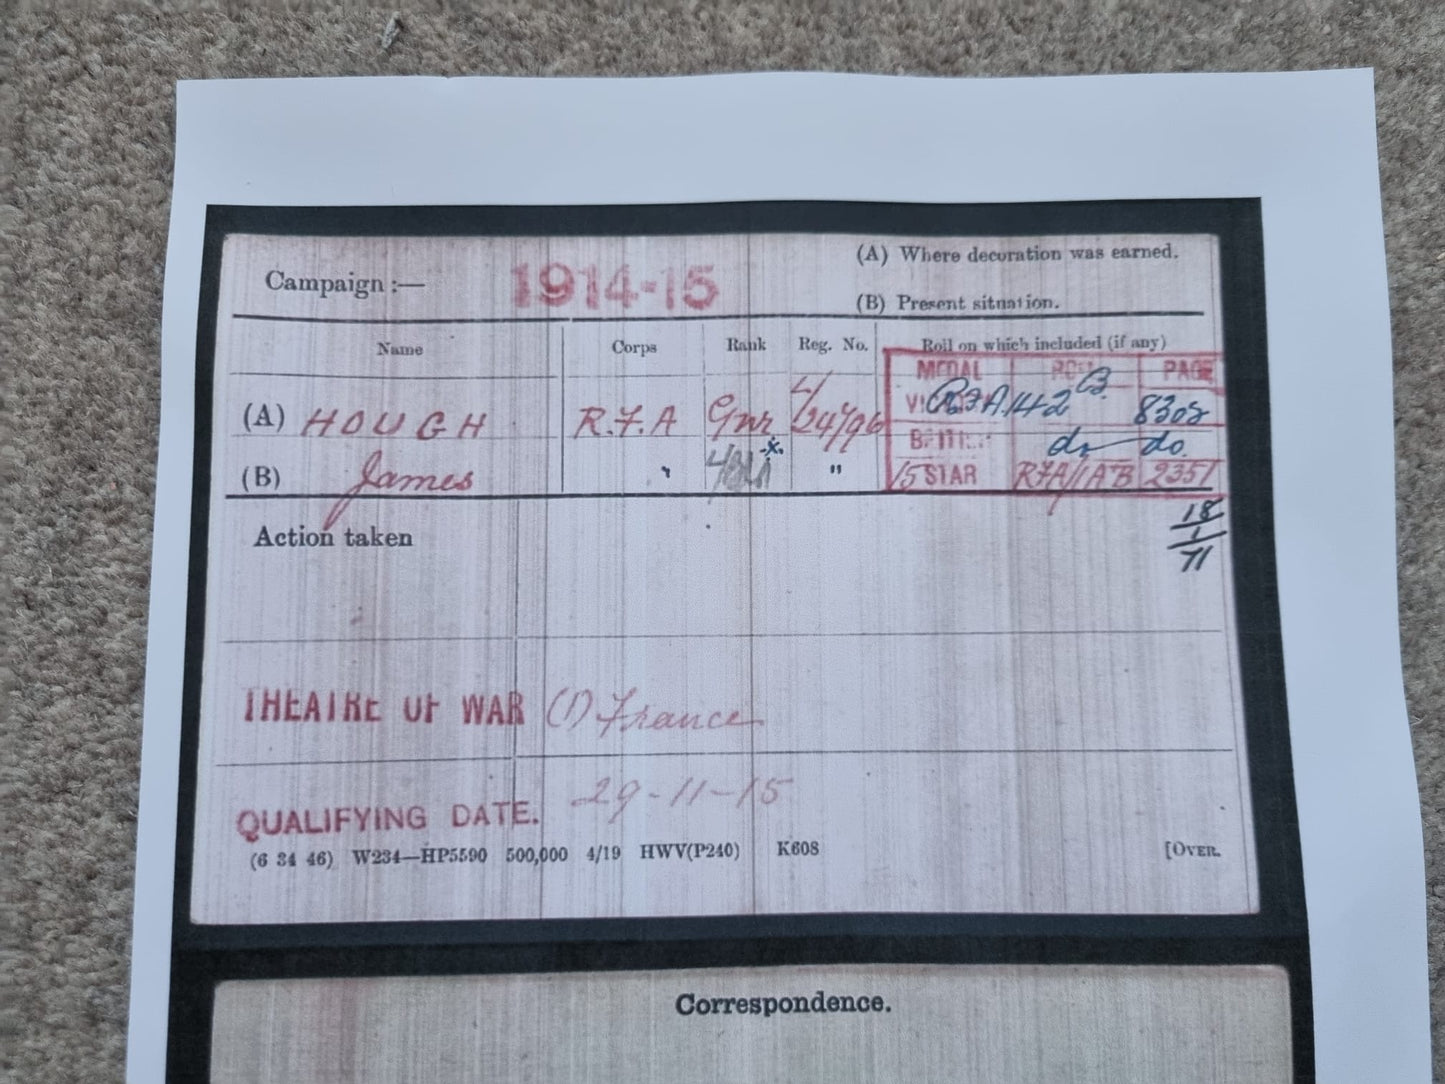 (A) Where decoration was earned.
Campaign :— 1914-15
(B) Present situation.
Name Corps Rank Reg. No. Roll on which included (if any)
MEDAL ROLL PAGE
(A) HOUGH R.F.A Gnr L/24796 R.F.A.142 B. 8308
do do.
(B) James " " 15 STAR RFA/1AB 2351
18
1
71
Action taken
THEATRE OF WAR (1) France
QUALIFYING DATE. 29-11-15
(6 34 46) W234—HP5590 500,000 4/19 HWV(P240) K608 [OVER.
Correspondence.